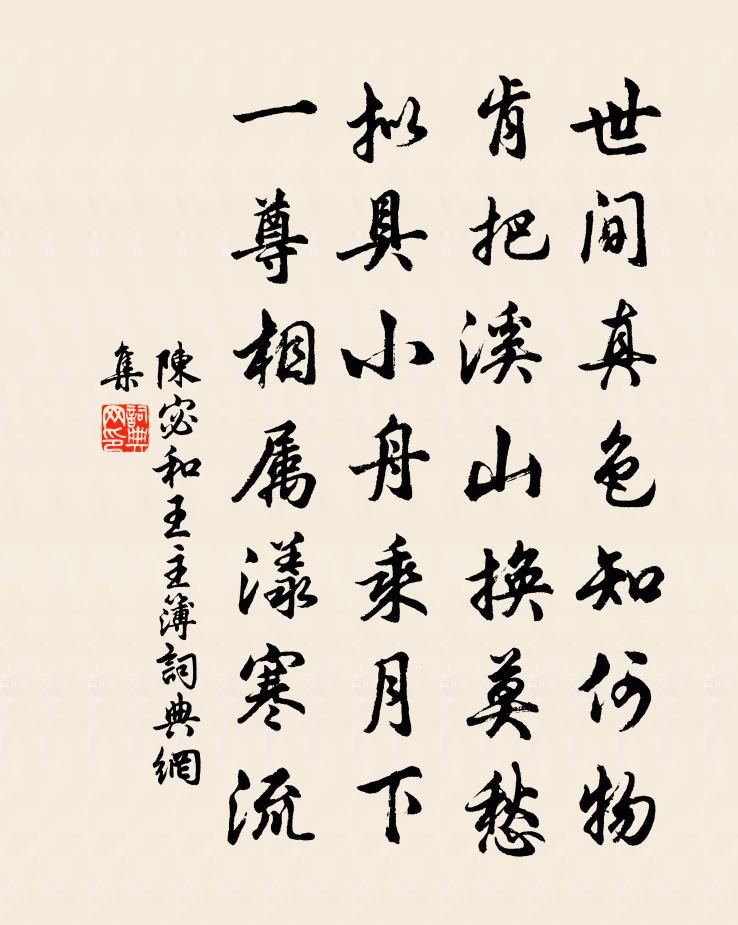 世间真色知何物
肯把溪山换莫愁
拟具小舟乘月下
一尊相属漾寒流
陳宓和王主簿詞典網
集
詞典
网印